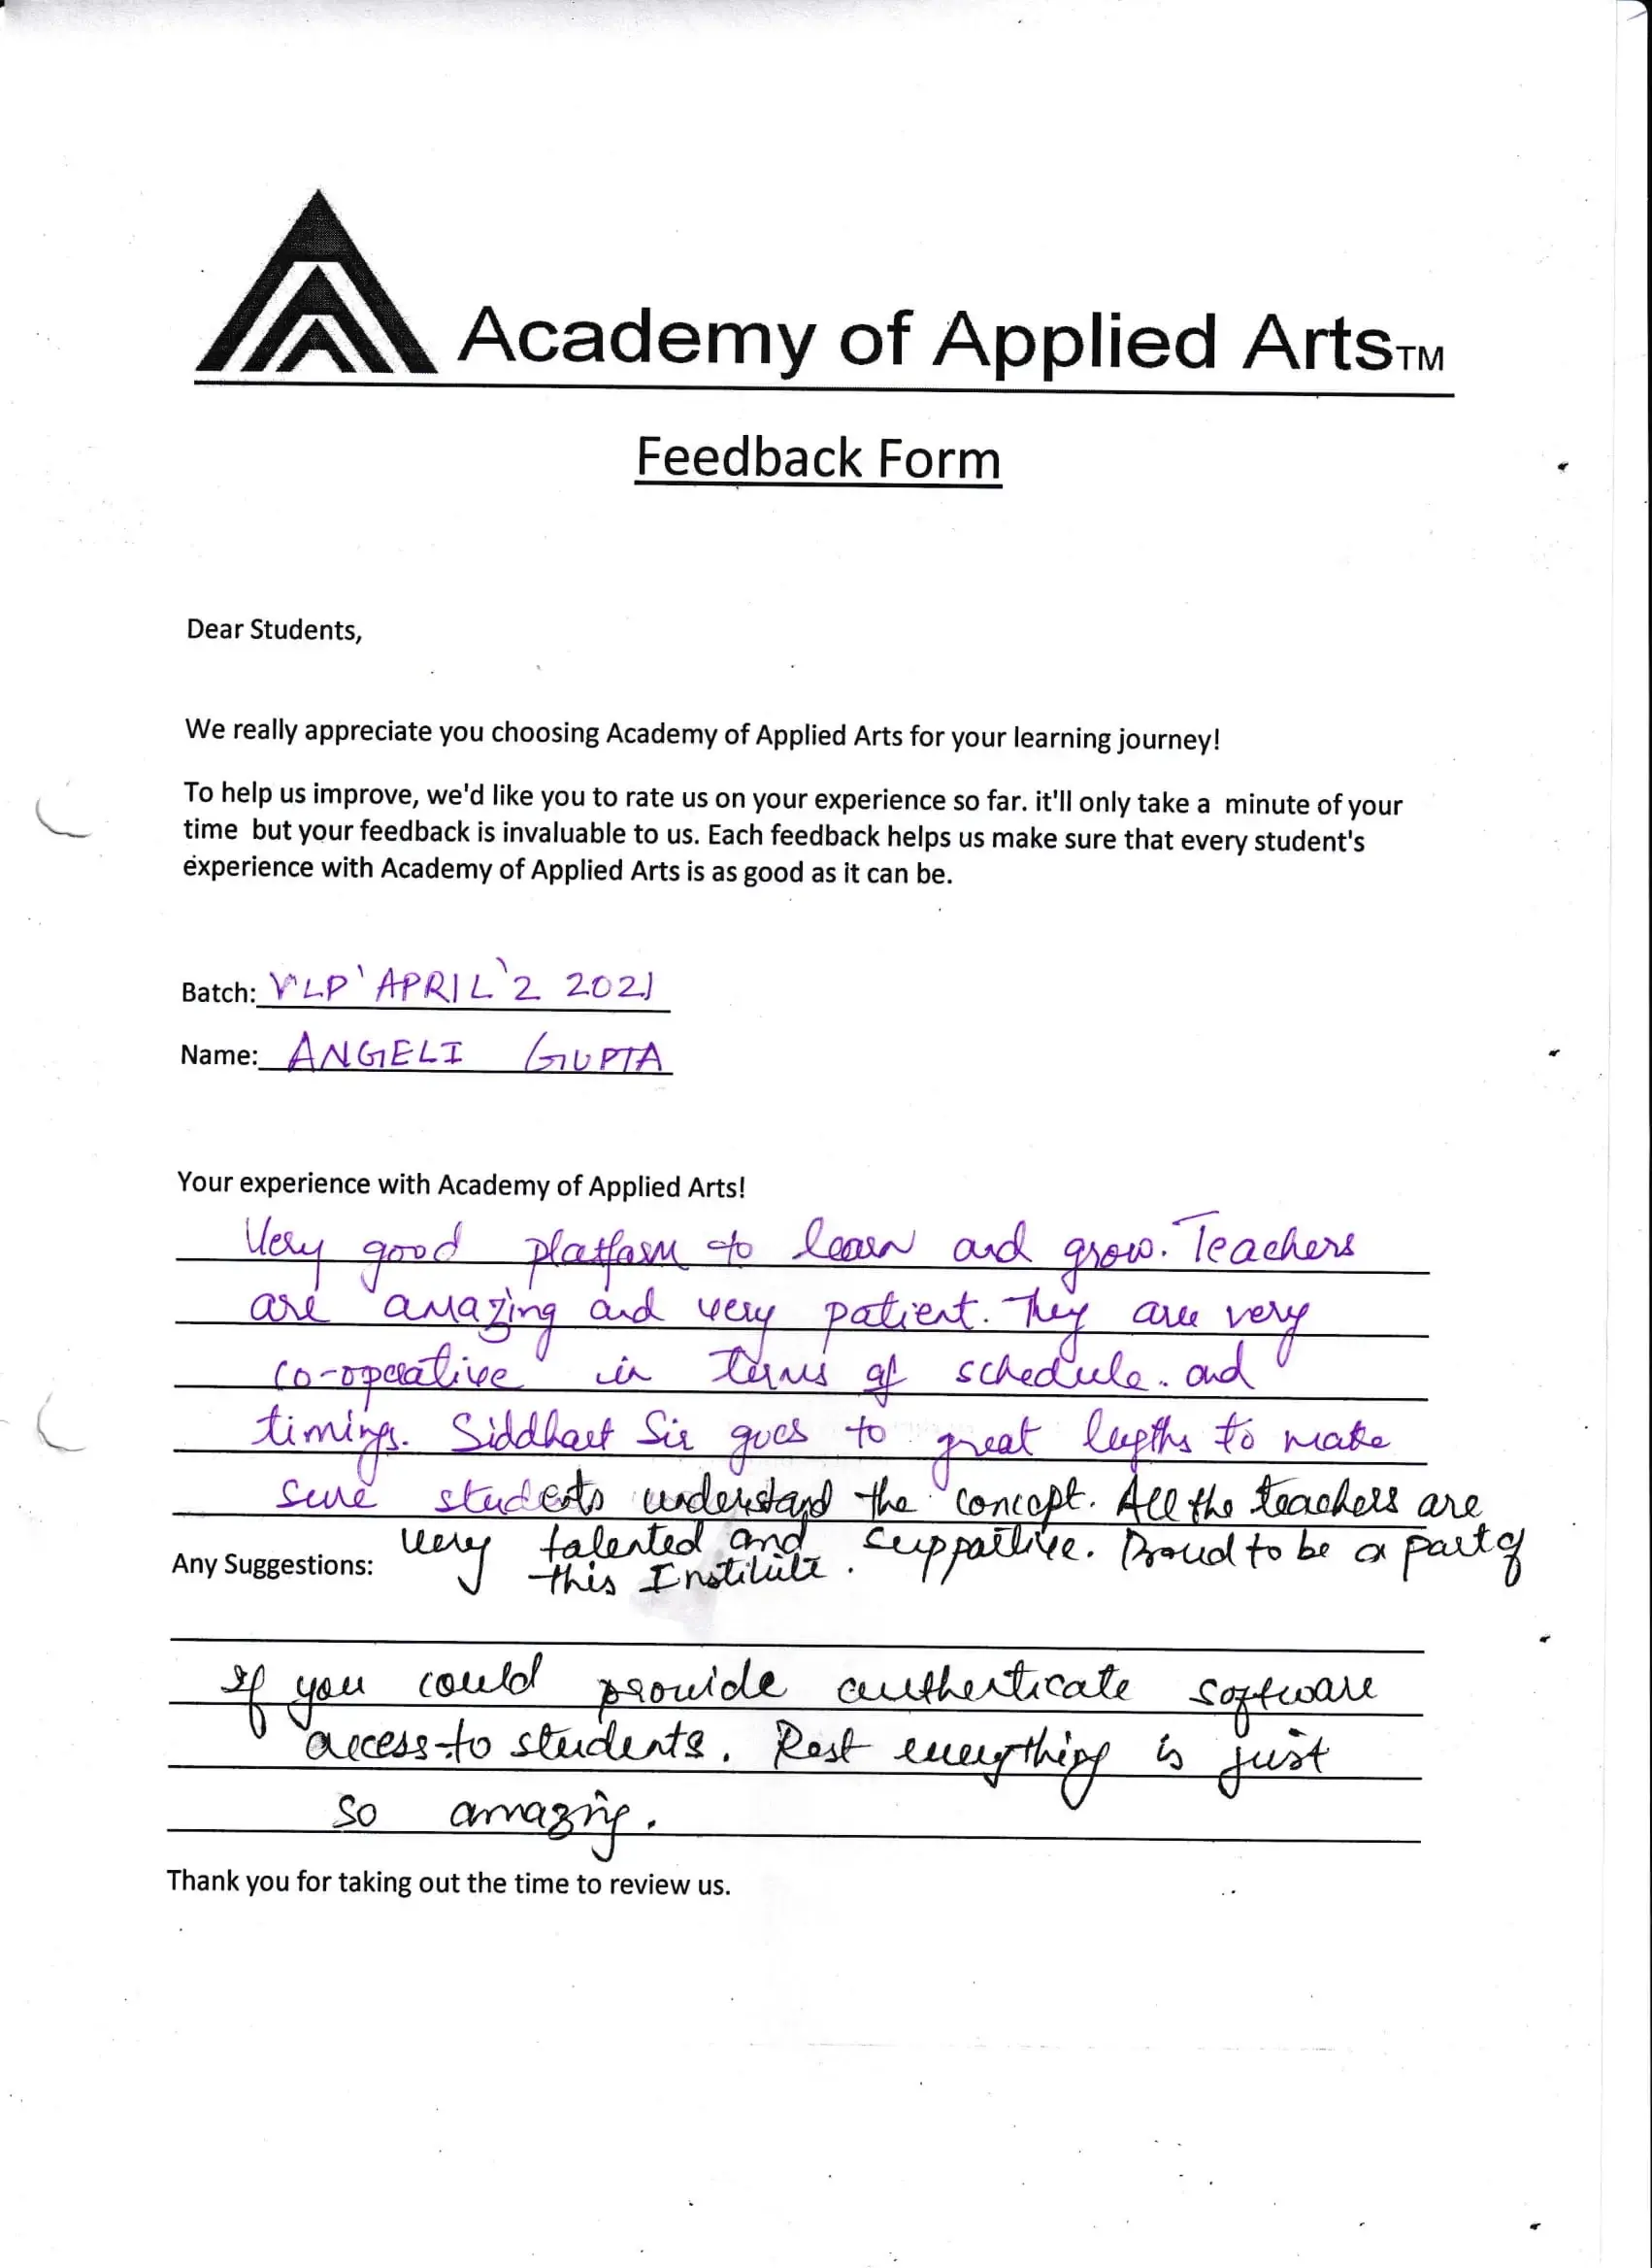 Academy of Applied Arts™
Feedback Form
Dear Students,
We really appreciate you choosing Academy of Applied Arts for your learning journey!
To help us improve, we'd like you to rate us on your experience so far. it'll only take a minute of your
time but your feedback is invaluable to us. Each feedback helps us make sure that every student's
experience with Academy of Applied Arts is as good as it can be.
Batch: VLP'APRIL'2 2021
Name: ANGELI GUPTA
Your experience with Academy of Applied Arts!
Very good platform to learn and grow. Teachers
are amazing and very patient. They are very
co-operative in terms of schedule. and
timings. Siddhart Sir goes to great legths to make
sure students understand the concept. All the teachers are
very talented and supportive. Proud to be a part of
Any Suggestions: this Institute.
If you could provide authenticate software
access to students. Rest everything is just
so amazing.
Thank you for taking out the time to review us.